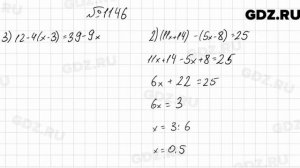 GDZ.RU
№1146
3) 12-4(x-3)=39-9x
2) (11x+14)-(5x-8)=25
11x+14-5x+8=25
6x+22=25
6x=3
x=3:6
x=0.5